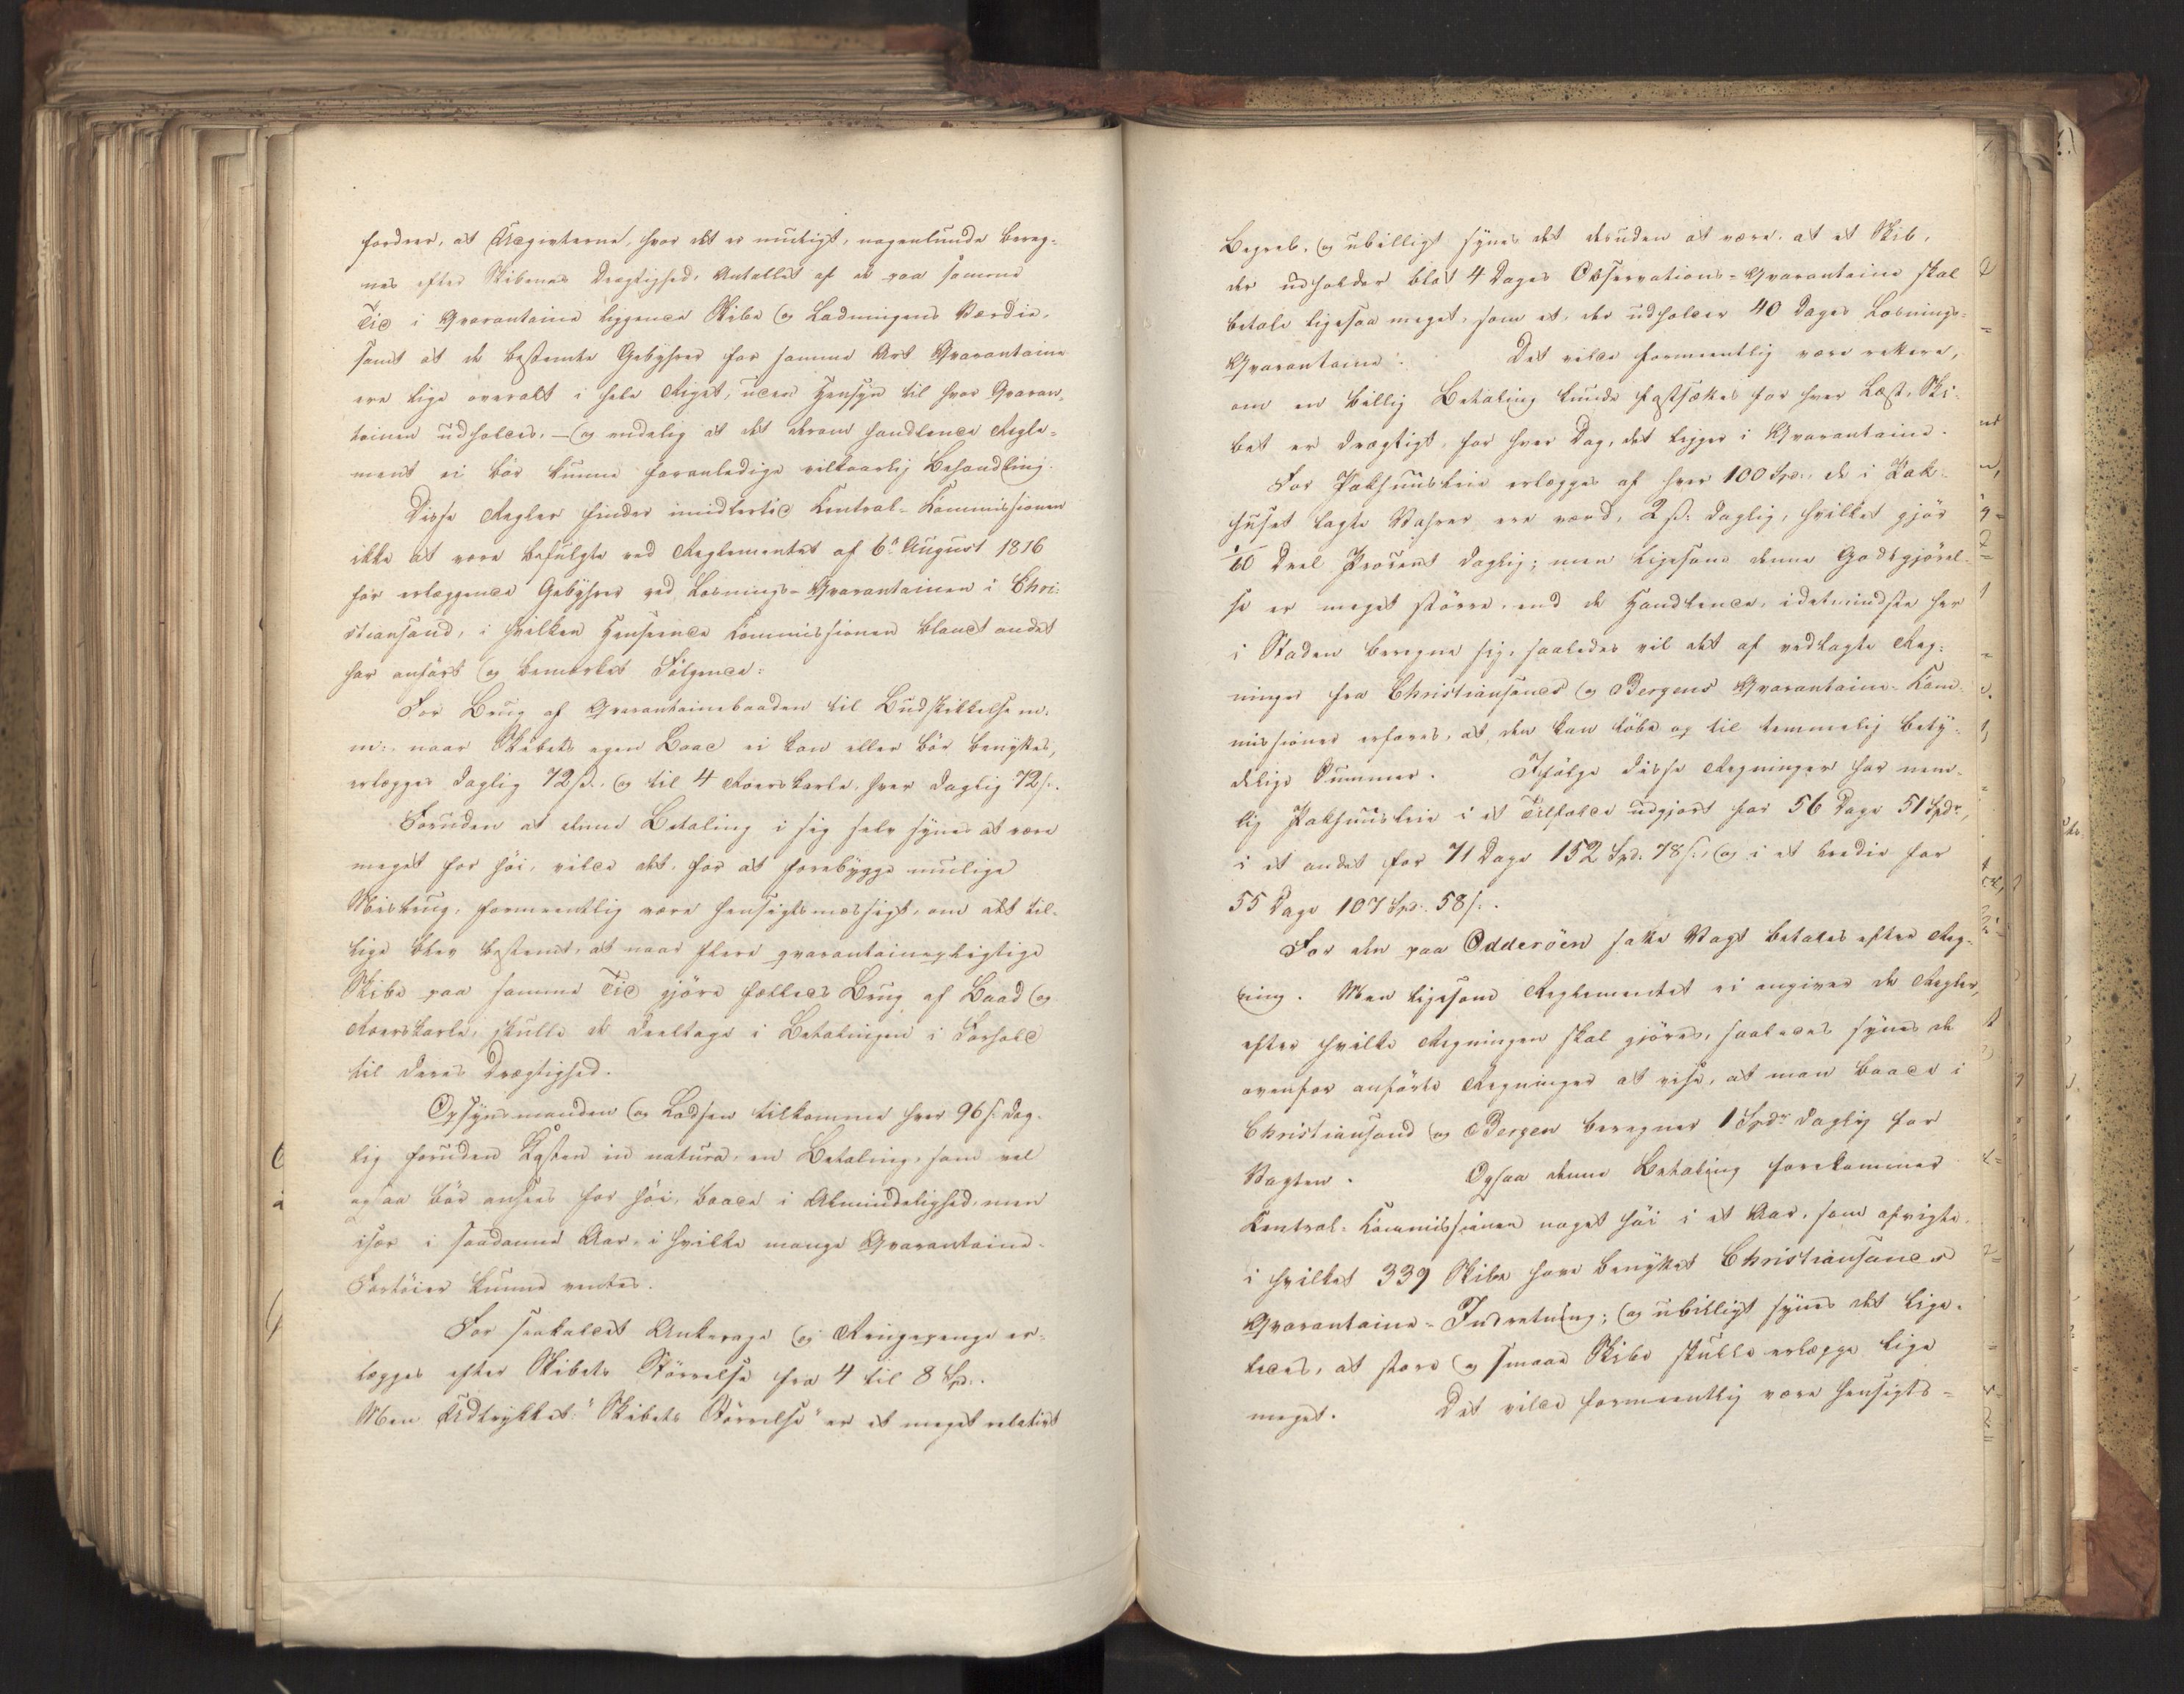 fordrer, at Udgivterne, hvor det er muligt, nogenlunde bereg-
nes efter Skibenes Drægtighed, Antallet af de paa samme
Tid i Qvarantaine liggende Skibe og Ladningens Værdie,
samt at de bestemte Gebyhrer for samme Art Qvarantaine
ere lige overalt i hele Riget, uden Hensyn til hvor Qvaran-
tainen udholdes, – og endelig at det derom handlende Regle-
ment ei bör kunne foranledige vilkaarlig Behandling.
Disse Regler finder imidlertid Central-Commissionen
ikke at være befulgte ved Reglementet af 6te August 1816
for erlæggende Gebyhrer ved Losnings-Qvarantainen i Chri-
stiansand, i hvilken Henseende Commissionen blandt andet
har anfört og bemærket Fölgende:
For Brug af Qvarantainebaaden til Budskikkelse m.
m:, naar Skibets egen Baad ei kan eller bör benyttes,
erlægges daglig 72 s., og til 4 Roerskarle, hver daglig 72 s.
Foruden at denne Betaling i sig selv synes at være
meget for höi, vilde det, for at forebygge mulige
Misbrug, formeentlig være hensigtsmæssigt, om det til-
lige blev bestemt, at naar flere qvarantainepligtige
Skibe paa samme Tid gjöre fælleds Brug af Baad og
Roerskarle, skulle de deeltage i Betalingen i Forhold
til deres Drægtighed.
Opsynsmanden og Lodsen tilkomme hver 96 s. dag-
lig foruden Kosten in natura, en Betaling, som vel
ogsaa bör ansees for höi, baade i Almindelighed, men
især i saadanne Aar, i hvilke mange Qvarantaine-
Fartöier kunne ventes.
For saakaldet Ankerage og Ringepenge er-
lægges efter Skibets Störrelse fra 4 til 8 Spd.
Men Udtrykket: "Skibets Störrelse" er et meget relativt
Begreb, og ubilligt synes det desuden at være, at et Skib,
der udholder blot 4 Dages Observations-Qvarantaine skal
betale ligesaa meget, som et, der udholder 40 Dages Losnings-
Qvarantaine. Det vilde formeentlig være rettere,
om en billig Betaling kunde fastsættes for hver Læst, Ski-
bet er drægtigt, for hver Dag, det ligger i Qvarantaine.
For Pakhuusleie erlægges af hver 100 Spd., de i Pak-
huset lagte Vahrer ere værd, 2 s. daglig, hvilket gjör
1/60 Deel Procent daglig; men ligesom denne Godtgjörel-
se er meget större, end de Handlende, idetmindste her
i Staden beregne sig, saaledes vil det af vedlagte Reg-
ninger fra Christiansands og Bergens Qvarantaine-Com-
missioner erfares, at den kan löbe op til temmelig bety-
delige Summer. Ifölge disse Regninger har nem-
lig Pakhuusleie i et Tilfælde udgjort for 56 Dage 51 Spdr,
i et andet for 71 Dage 152 Spd. 78 s., og i et tredie for
55 Dage 107 Spd. 58 s.
For den paa Odderöen satte Vagt betales efter Reg-
ning. Men ligesom Reglementet ei angiver de Regler,
efter hvilke Regningen skal gjöres, saaledes synes de
ovenfor anförte Regninger at vise, at man baade i
Christiansand og Bergen beregner 1 Spdr daglig for
Vagten. Ogsaa denne Betaling forekommer
Central-Commissionen noget höi i et Aar, som afvigte,
i hvilket 339 Skibe have benyttet Christiansands
Qvarantaine-Indretning; og ubilligt synes det lige-
ledes, at store og smaae Skibe skulle erlægge lige
meget. Det vilde formeentlig være hensigts-